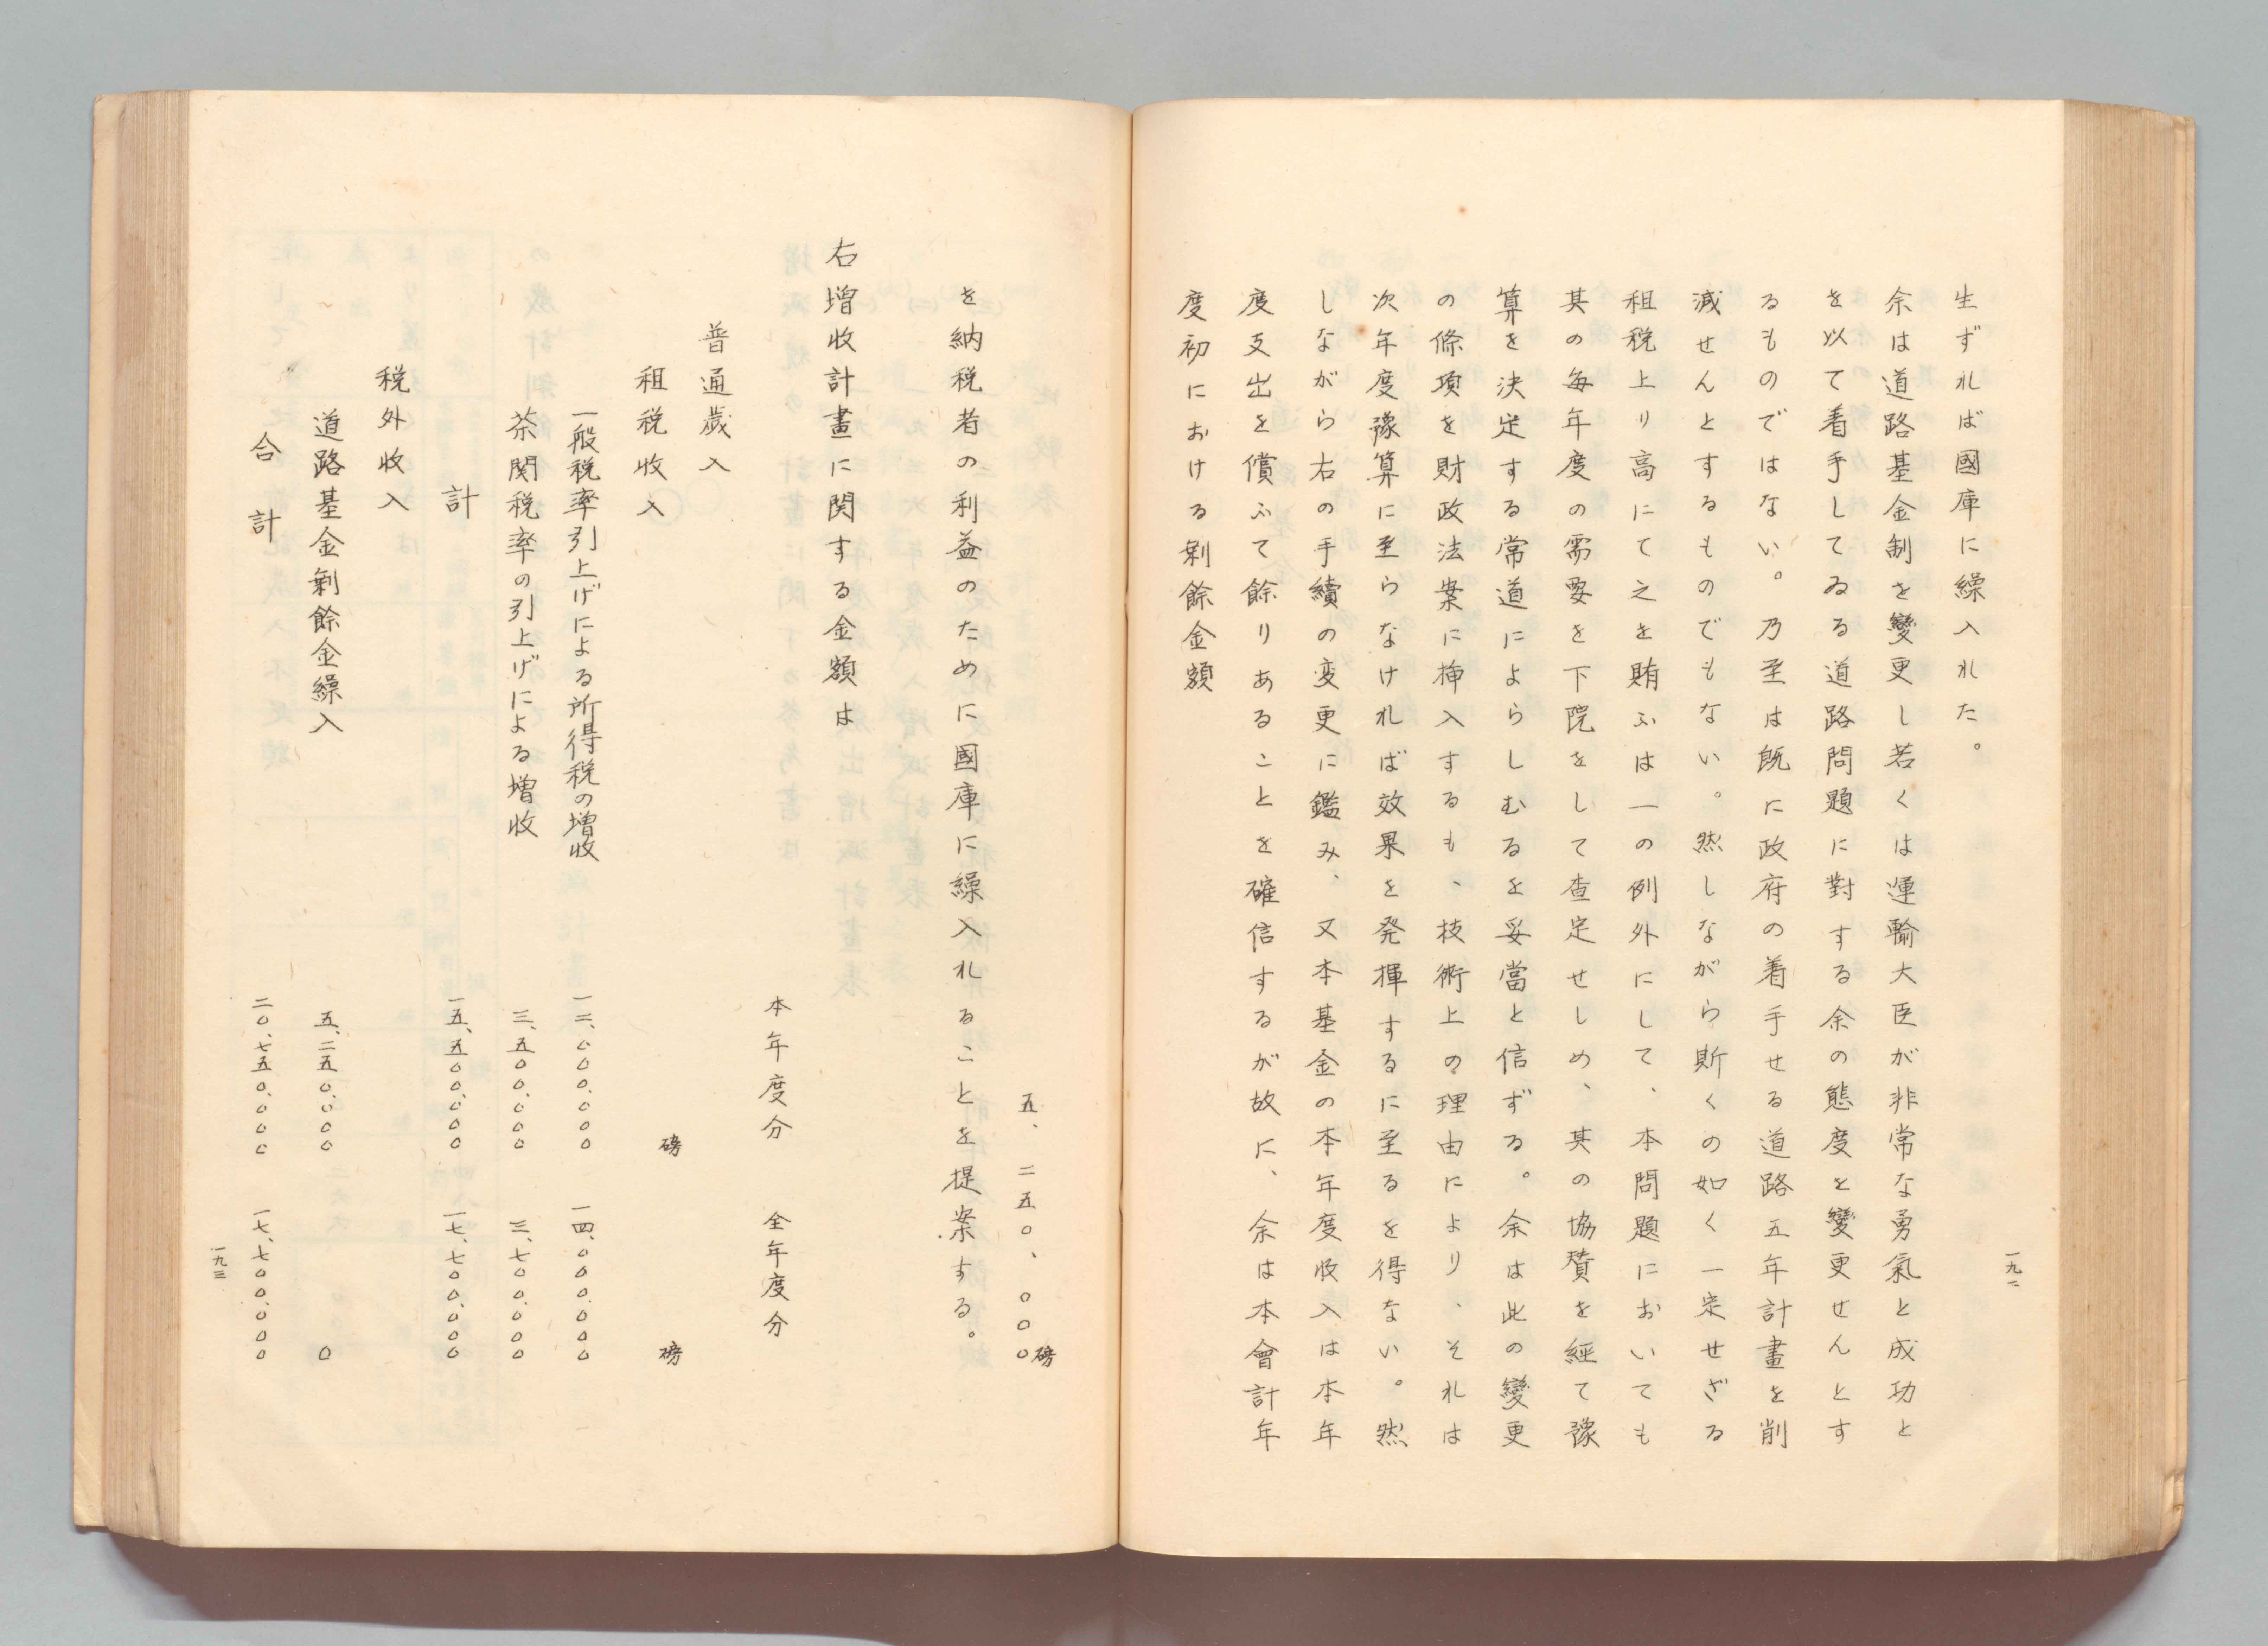 生ずれば國庫に繰入れた。
余は道路基金制を變更し若くは運輸大臣が非常な勇氣と成功と
を以て着手してゐる道路問題に對する余の態度を變更せんとす
るものではない。乃至は既に政府の着手せる道路五年計畫を削
減せんとするものでもない。然しながら斯くの如く一定せざる
租税上り高にて之を賄ふは一の例外にして、本問題においても
其の毎年度の需要を下院をして査定せしめ、其の協賛を經て豫
算を決定する常道によらしむるを妥當と信ずる。余は此の變更
の條項を財政法案に挿入するも、技術上の理由により、それは
次年度豫算に至らなければ效果を発揮するに至るを得ない。然
しながら右の手續の変更に鑑み、又本基金の本年度收入は本年
度支出を償ふて餘りあることを確信するが故に、余は本會計年
度初における剰餘金額
一九二
五、二五〇、〇〇〇磅
を納税者の利益のために國庫に繰入れることを提案する。
右增收計畫に関する金額は
本年度分 全年度分
普通歲入
租税收入 磅 磅
一般税率引上げによる所得税の增收 一二、〇〇〇、〇〇〇 一四、〇〇〇、〇〇〇
茶関税率の引上げによる增收 三、五〇〇、〇〇〇 三、七〇〇、〇〇〇
計 一五、五〇〇、〇〇〇 一七、七〇〇、〇〇〇
税外收入
道路基金剰餘金繰入 五、二五〇、〇〇〇 〇
合計 二〇、七五〇、〇〇〇 一七、七〇〇、〇〇〇
一九三